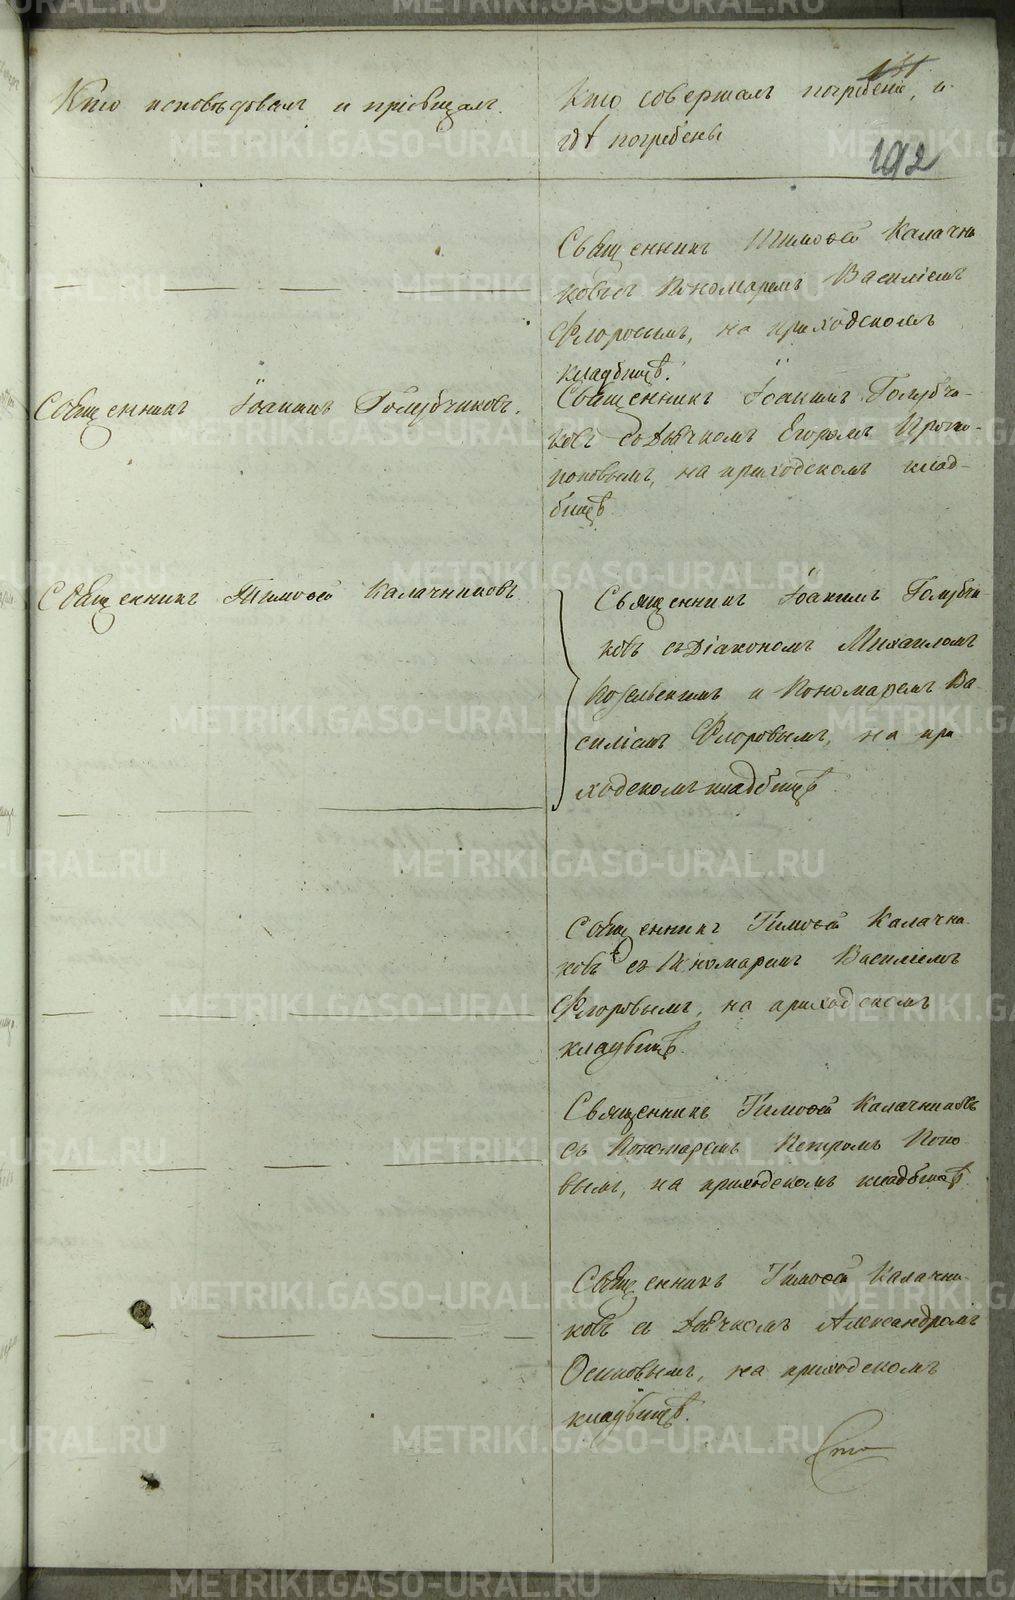 Кто исповѣдовалъ и пріобщалъ.
Кто совершалъ погребеніе, и
гдѣ погребены
192
Священникъ Тимоѳей Калачни
ковъ съ Пономаремъ Василіемъ
Флоровымъ, на приходскомъ
кладбищѣ.
Священникъ Іоакимъ Голубчиковъ.
Священникъ Іоакимъ Голубчи-
ковъ съ Дьячкомъ Егоромъ Прото-
поповымъ, на приходскомъ клад-
бищѣ
Священникъ Тимоѳей Калачниковъ
Священникъ Іоакимъ Голубчи-
ковъ съ Діакономъ Михаиломъ
Козельскимъ и Пономаремъ Ва-
силіемъ Флоровымъ, на при
ходскомъ кладбищѣ
Священникъ Тимоѳей Калачни-
ковъ съ Пономаремъ Василіемъ
Флоровымъ, на приходскомъ
кладбищѣ.
Священникъ Тимоѳей Калачниковъ
съ Пономаремъ Петромъ Попо
вымъ, на приходскомъ кладбищѣ.
Священникъ Тимоѳей Калачни-
ковъ съ Дьячкомъ Александромъ
Осиповымъ, на приходскомъ
кладбищѣ.
METRIKI.GASO-URAL.RU